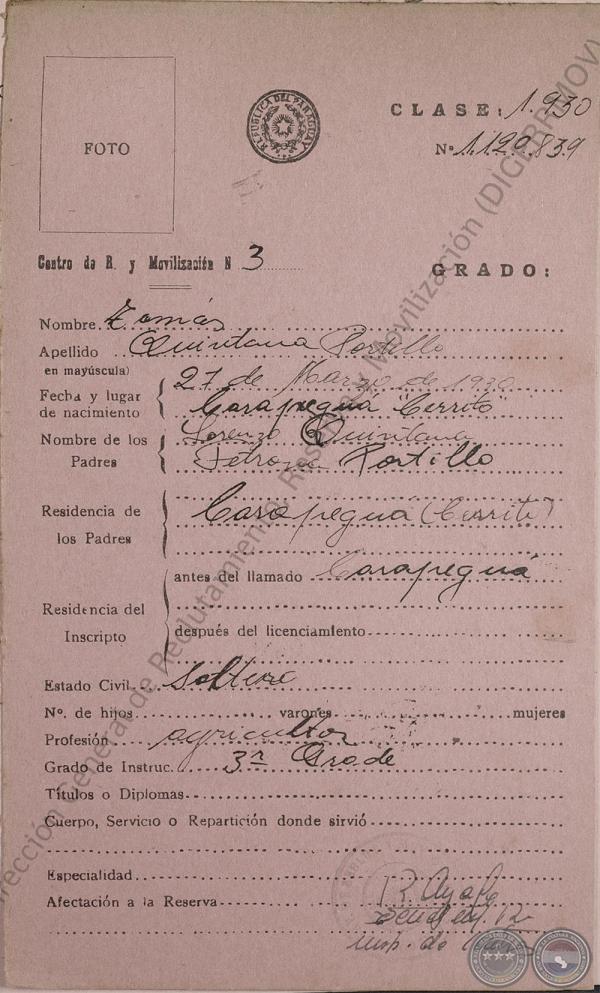 FOTO
REPUBLICA DEL PARAGUAY
CLASE: 1.930
Nº 1.129.839
Centro de R. y Movilización N 3
GRADO:
Nombre Tomás
Apellido Quintana Portillo
en mayúscula)
Fecha y lugar de nacimiento 27 de Marzo de 1930
Carapeguá "Cerrito"
Nombre de los Padres Lorenzo Quintana
Petrona Portillo
Residencia de los Padres Carapeguá (Cerrito)
Residencia del Inscripto
antes del llamado Carapeguá
después del licenciamiento
Estado Civil Soltero
Nº. de hijos varones mujeres
Profesión agricultor
Grado de Instruc. 3er Grado
Títulos o Diplomas
Cuerpo, Servicio o Repartición donde sirvió
Especialidad
Afectación a la Reserva
R. Ayala
Dirección General de Reclutamiento, Reservas y Movilización (DIGERRMOV)